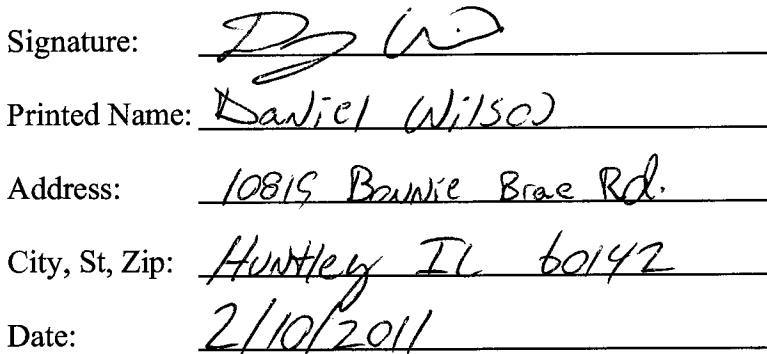 Signature:
Printed Name: Daniel Wilson
Address: 10815 Bonnie Brae Rd.
City, St, Zip: Huntley IL 60142
Date: 2/10/2011